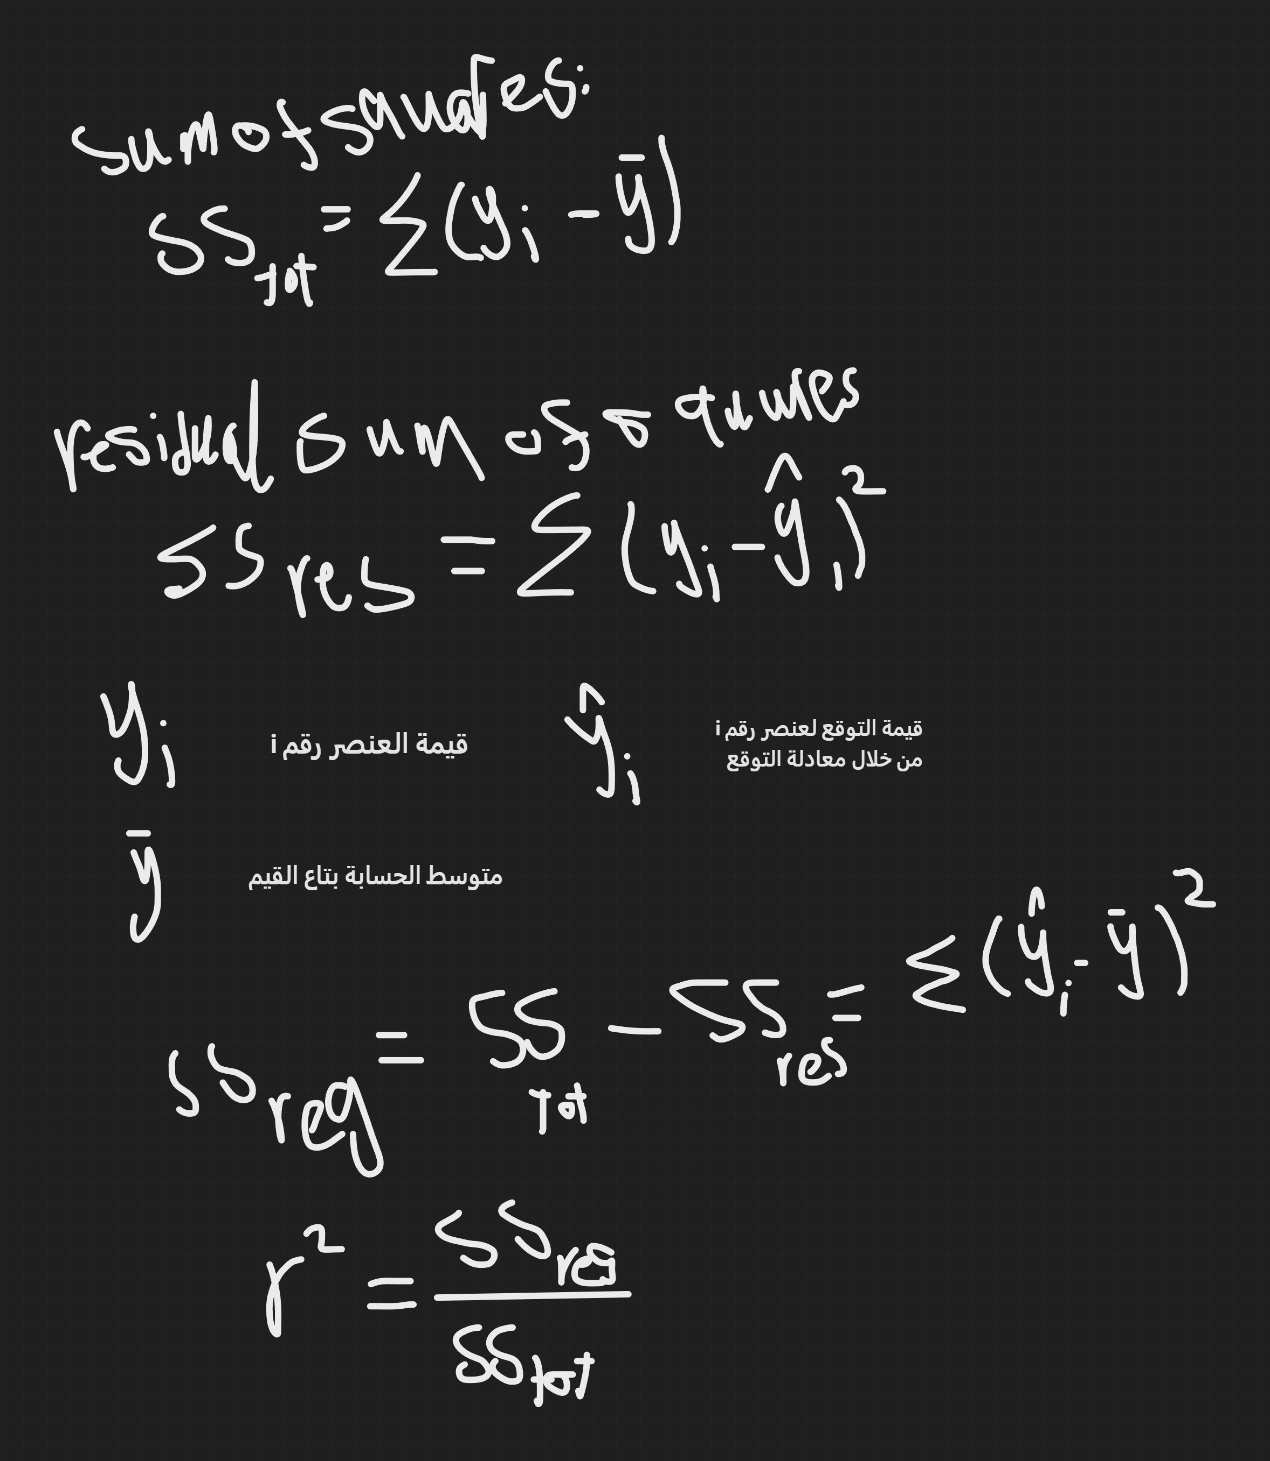 sum of squares:
SS_tot = Σ(y_i − ȳ)
residual sum of squares
SS_res = Σ(y_i − ŷ_i)²
y_i قيمة العنصر رقم i
ŷ_i قيمة التوقع لعنصر رقم i
من خلال معادلة التوقع
ȳ متوسط الحسابة بتاع القيم
SS_reg = SS_Tot − SS_res = Σ(ŷ_i − ȳ)²
r² = SS_reg / SS_tot